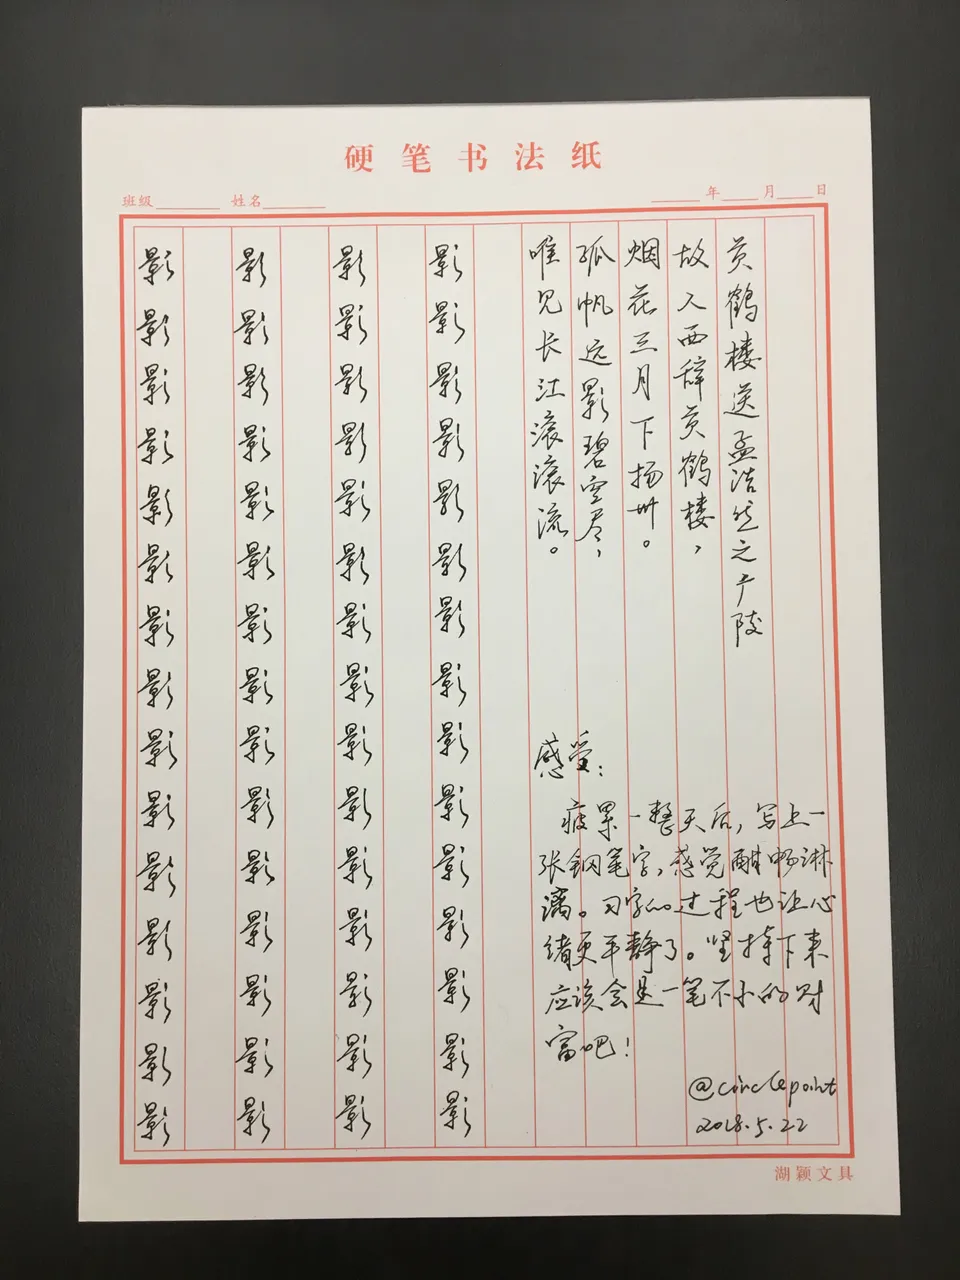 硬笔书法纸
班级 姓名 年 月 日
黄鹤楼送孟浩然之广陵
故人西辞黄鹤楼，
烟花三月下扬州。
孤帆远影碧空尽，
唯见长江滚滚流。
感受：
疲累一整天后，写上一
张钢笔字，感觉酣畅淋
漓。习字的过程也让心
绪更平静了。坚持下来
应该会是一笔不小的财
富吧！
@circlepoint
2018.5.22
影影影影影影影影影影影影影影影
影影影影影影影影影影影影影影影
影影影影影影影影影影影影影影影
影影影影影影影影影影影影影影影
湖颖文具